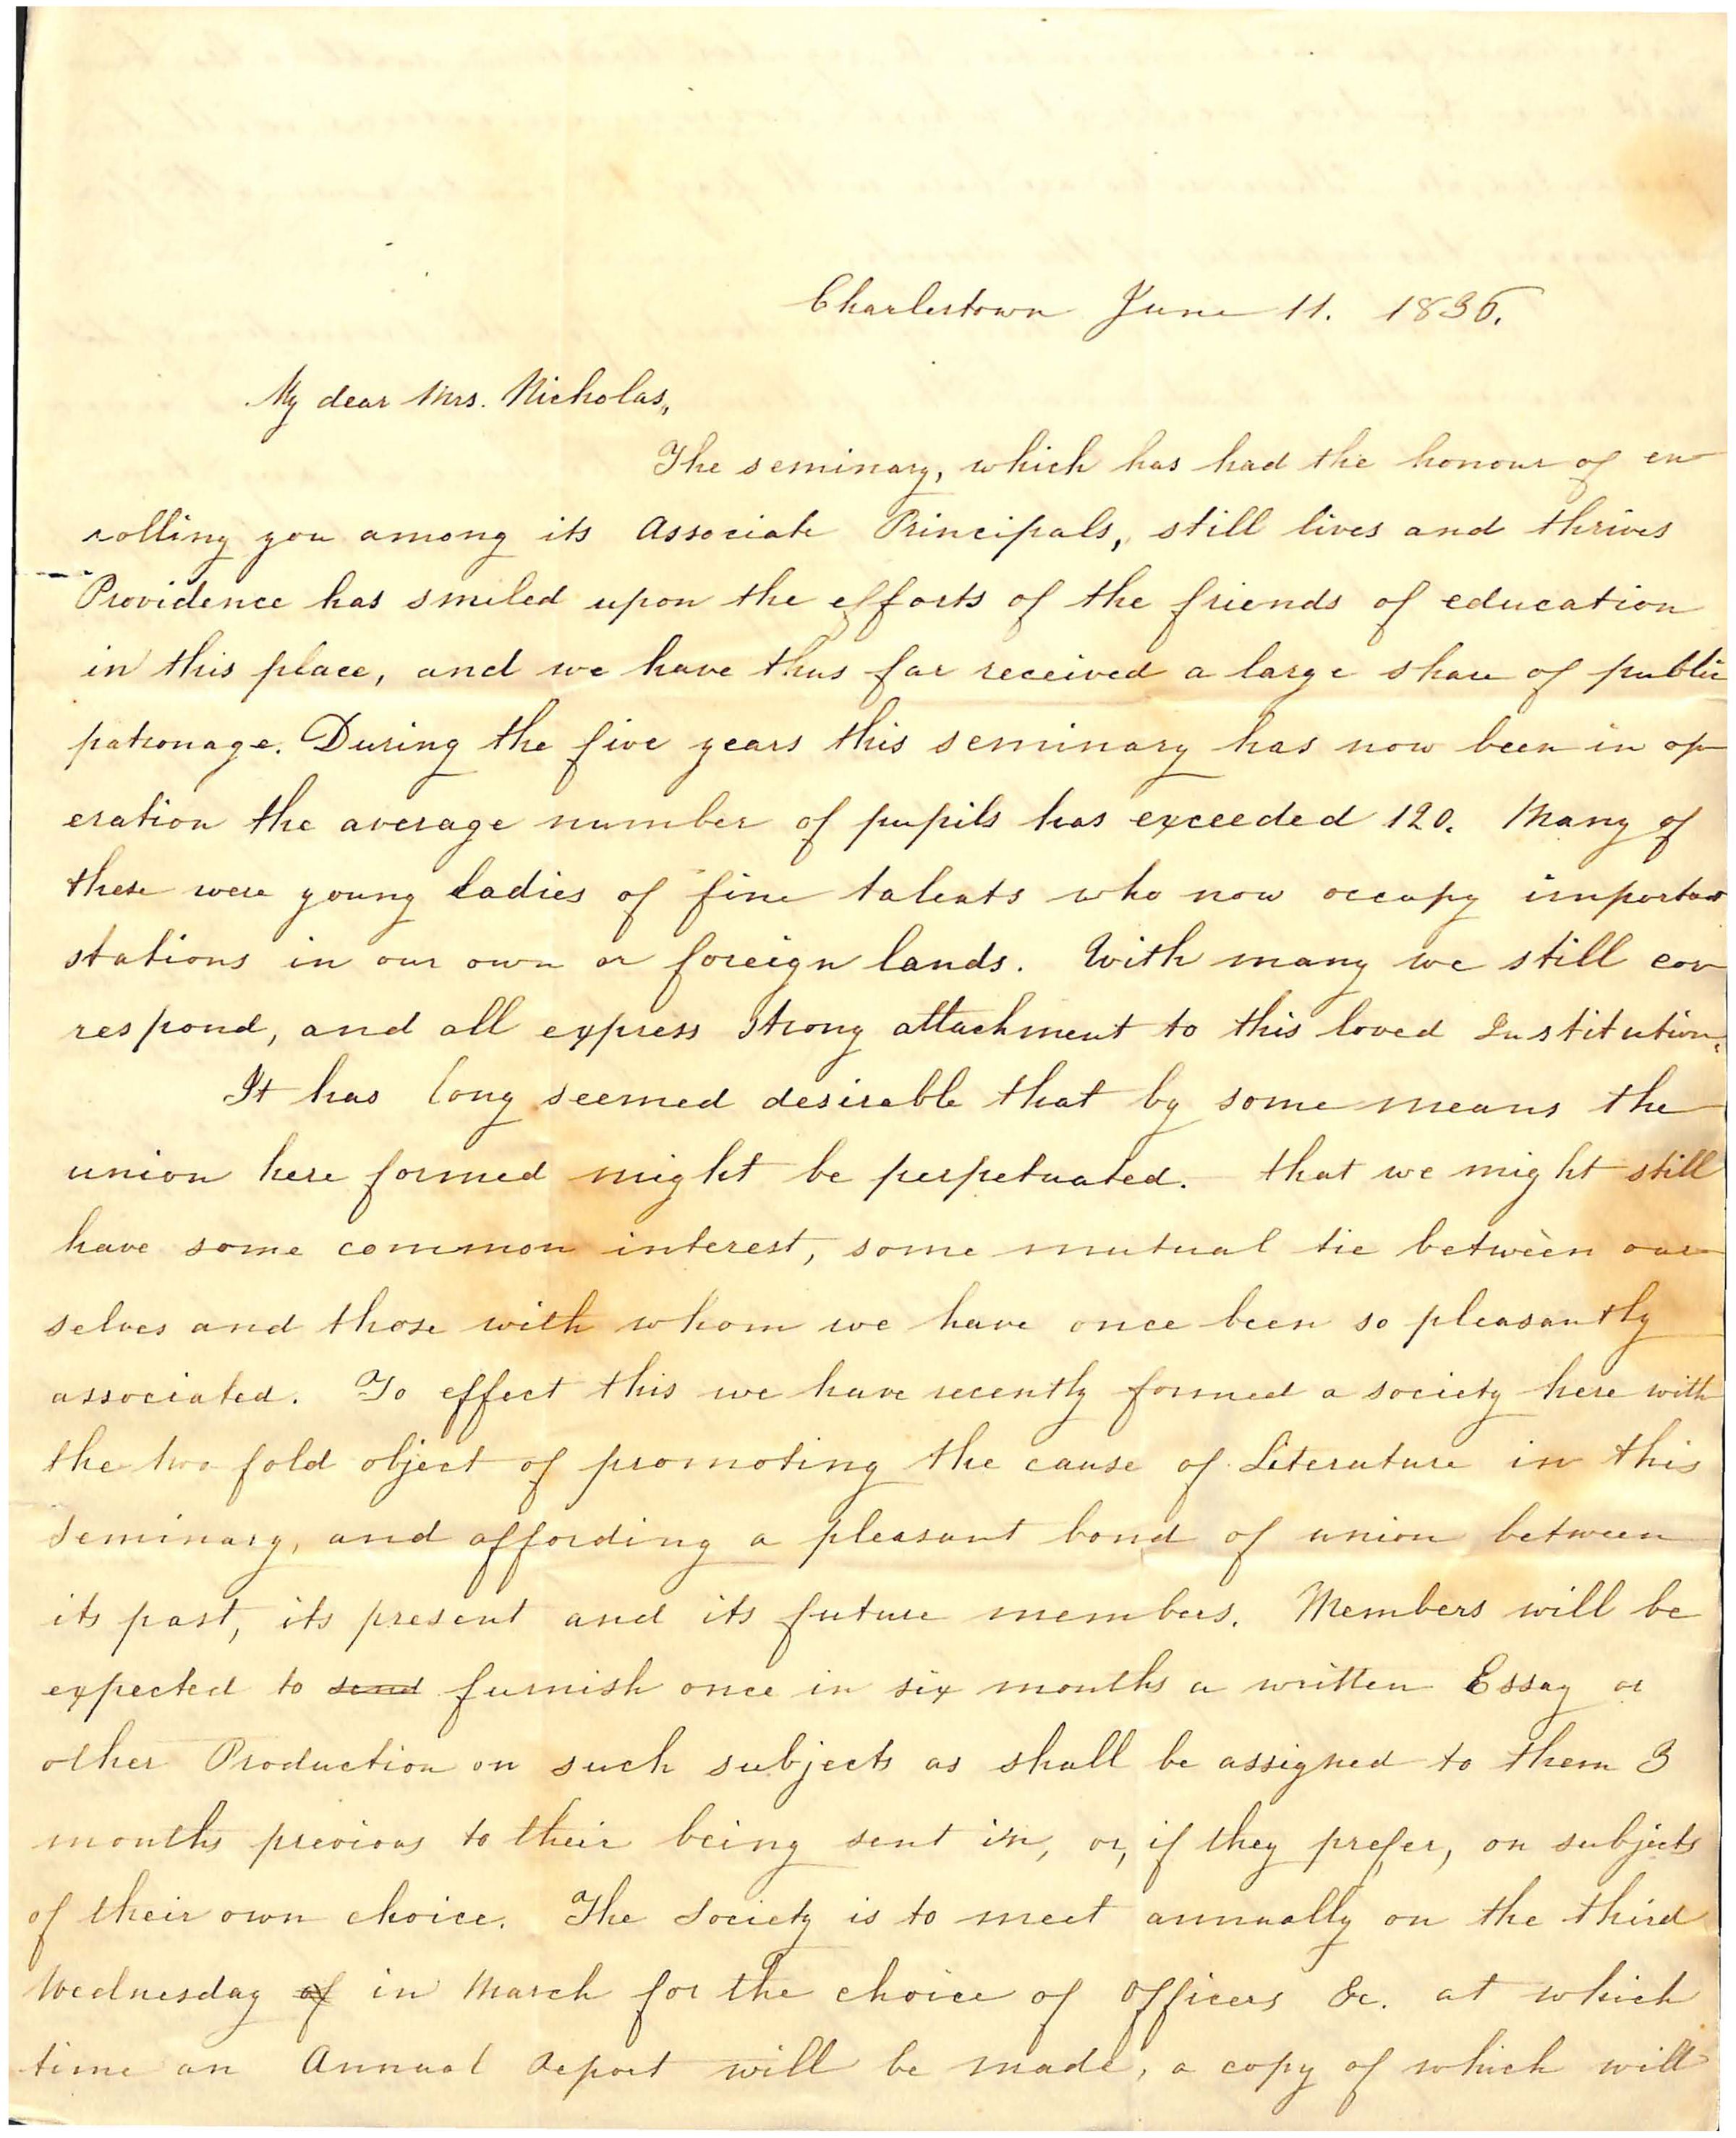 Charlestown June 11. 1836.
My dear Mrs. Nicholas,
The seminary, which has had the honour of en
rolling you among its Associate Principals, still lives and thrives
Providence has smiled upon the efforts of the friends of education
in this place, and we have thus far received a large share of public
patronage. During the five years this seminary has now been in op
eration the average number of pupils has exceeded 120. Many of
these were young ladies of fine talents who now occupy important
stations in our own or foreign lands. With many we still cor
respond, and all express strong attachment to this loved Institution.
It has long seemed desirable that by some means the
union here formed might be perpetuated. that we might still
have some common interest, some mutual tie between our
selves and those with whom we have once been so pleasantly
associated. To effect this we have recently formed a society here with
the two fold object of promoting the cause of Literature in this
Seminary, and affording a pleasant bond of union between
its past, its present and its future members. Members will be
expected to send furnish once in six months a written Essay or
other Production on such subjects as shall be assigned to them 3
months previous to their being sent in, or, if they prefer, on subjects
of their own choice. The Society is to meet annually on the third
Wednesday of in March for the choice of Officers &c. at which
time an Annual Report will be made, a copy of which will